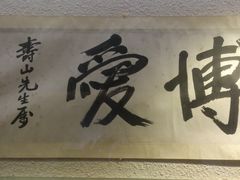 博愛
壽山先生屬